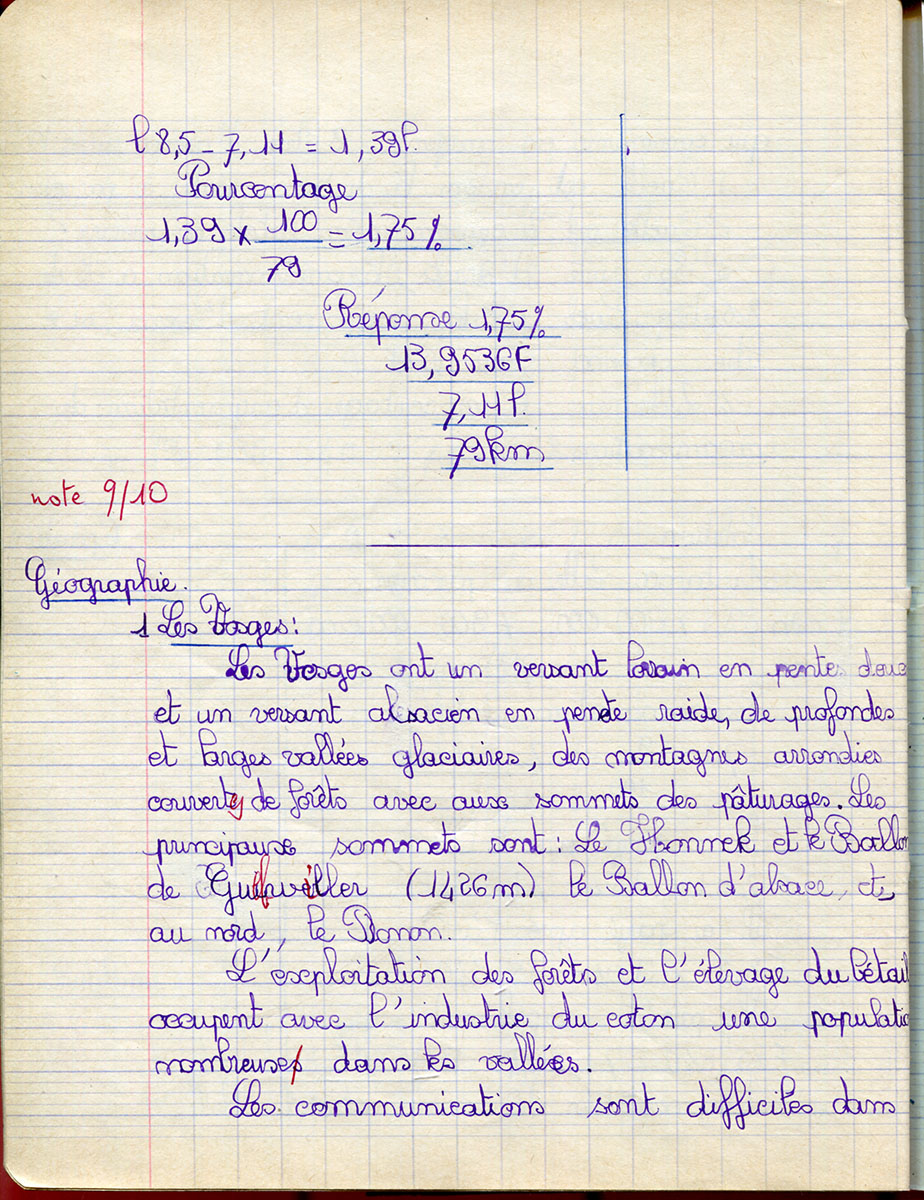 l 8,5 - 7,11 = 1,39l.
Pourcentage
1,39 × 100/79 = 1,75%
Réponse 1,75%
13,9536F
7,11l.
79km
note 9/10
Géographie.
1 Les Vosges:
Les Vosges ont un versant lorrain en pente douc
et un versant alsacien en pente raide, de profondes
et larges vallées glaciaires, des montagnes arrondies
couvertes de forêts avec aux sommets des pâturages. Les
principaux sommets sont : Le Honnek et le Ballon
de Guebwiller (1426m) le Ballon d'alsace, et,
au nord, le Donon.
L'exploitation des forêts et l'élevage du bétail
occupent avec l'industrie du coton une populatio
nombreuse dans les vallées.
Les communications sont difficiles dans